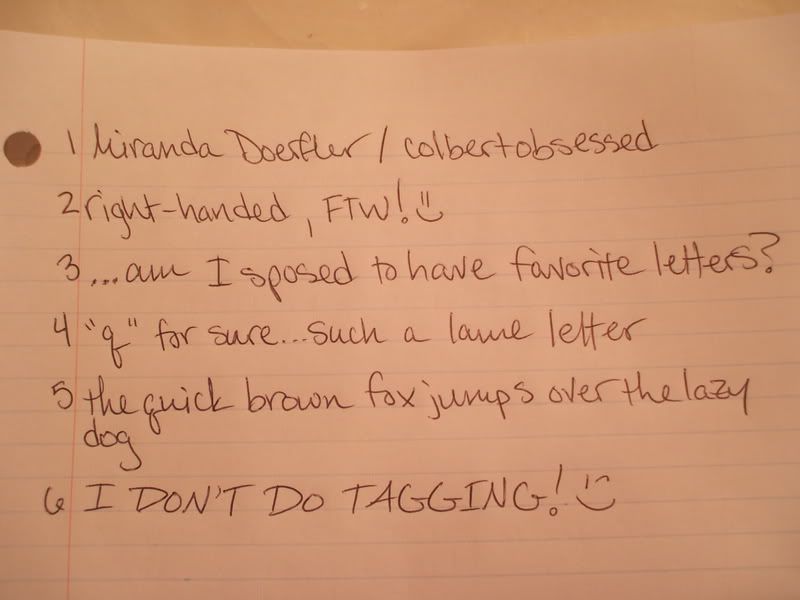 1 Miranda Doerfler / colbertobsessed
2 right-handed, FTW! :)
3 ...am I sposed to have favorite letters?
4 "q" for sure...such a lame letter
5 the quick brown fox jumps over the lazy
dog
6 I DON'T DO TAGGING! :)